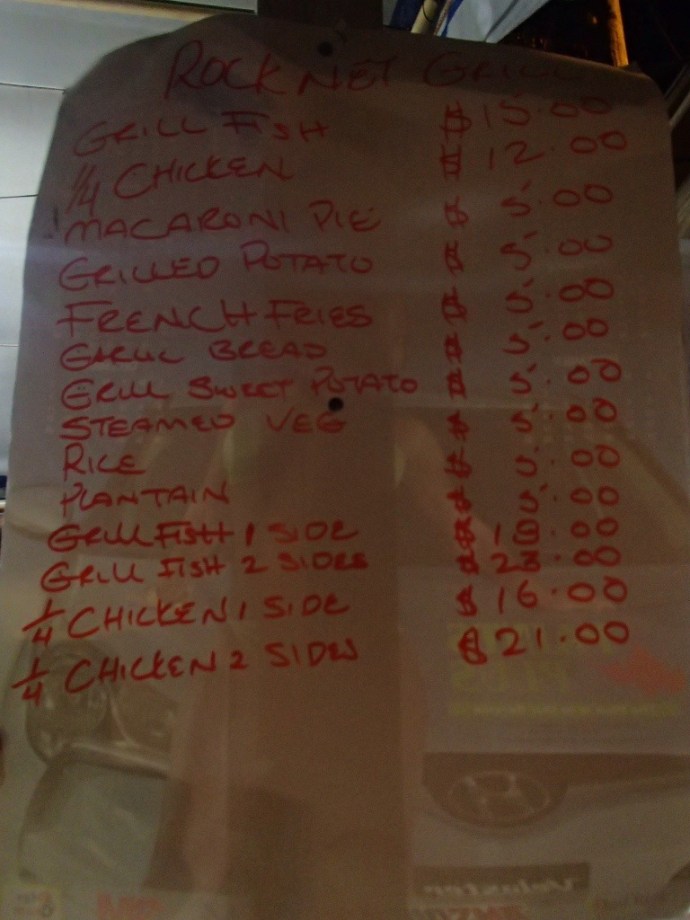 ROCK NET GRILL
GRILL FISH $15.00
1/4 CHICKEN $12.00
MACARONI PIE $5.00
GRILLED POTATO $5.00
FRENCH FRIES $5.00
GARLIC BREAD $5.00
GRILL SWEET POTATO $5.00
STEAMED VEG $5.00
RICE $5.00
PLANTAIN $5.00
GRILL FISH 1 SIDE $18.00
GRILL FISH 2 SIDES $23.00
1/4 CHICKEN 1 SIDE $16.00
1/4 CHICKEN 2 SIDES $21.00
Veloster